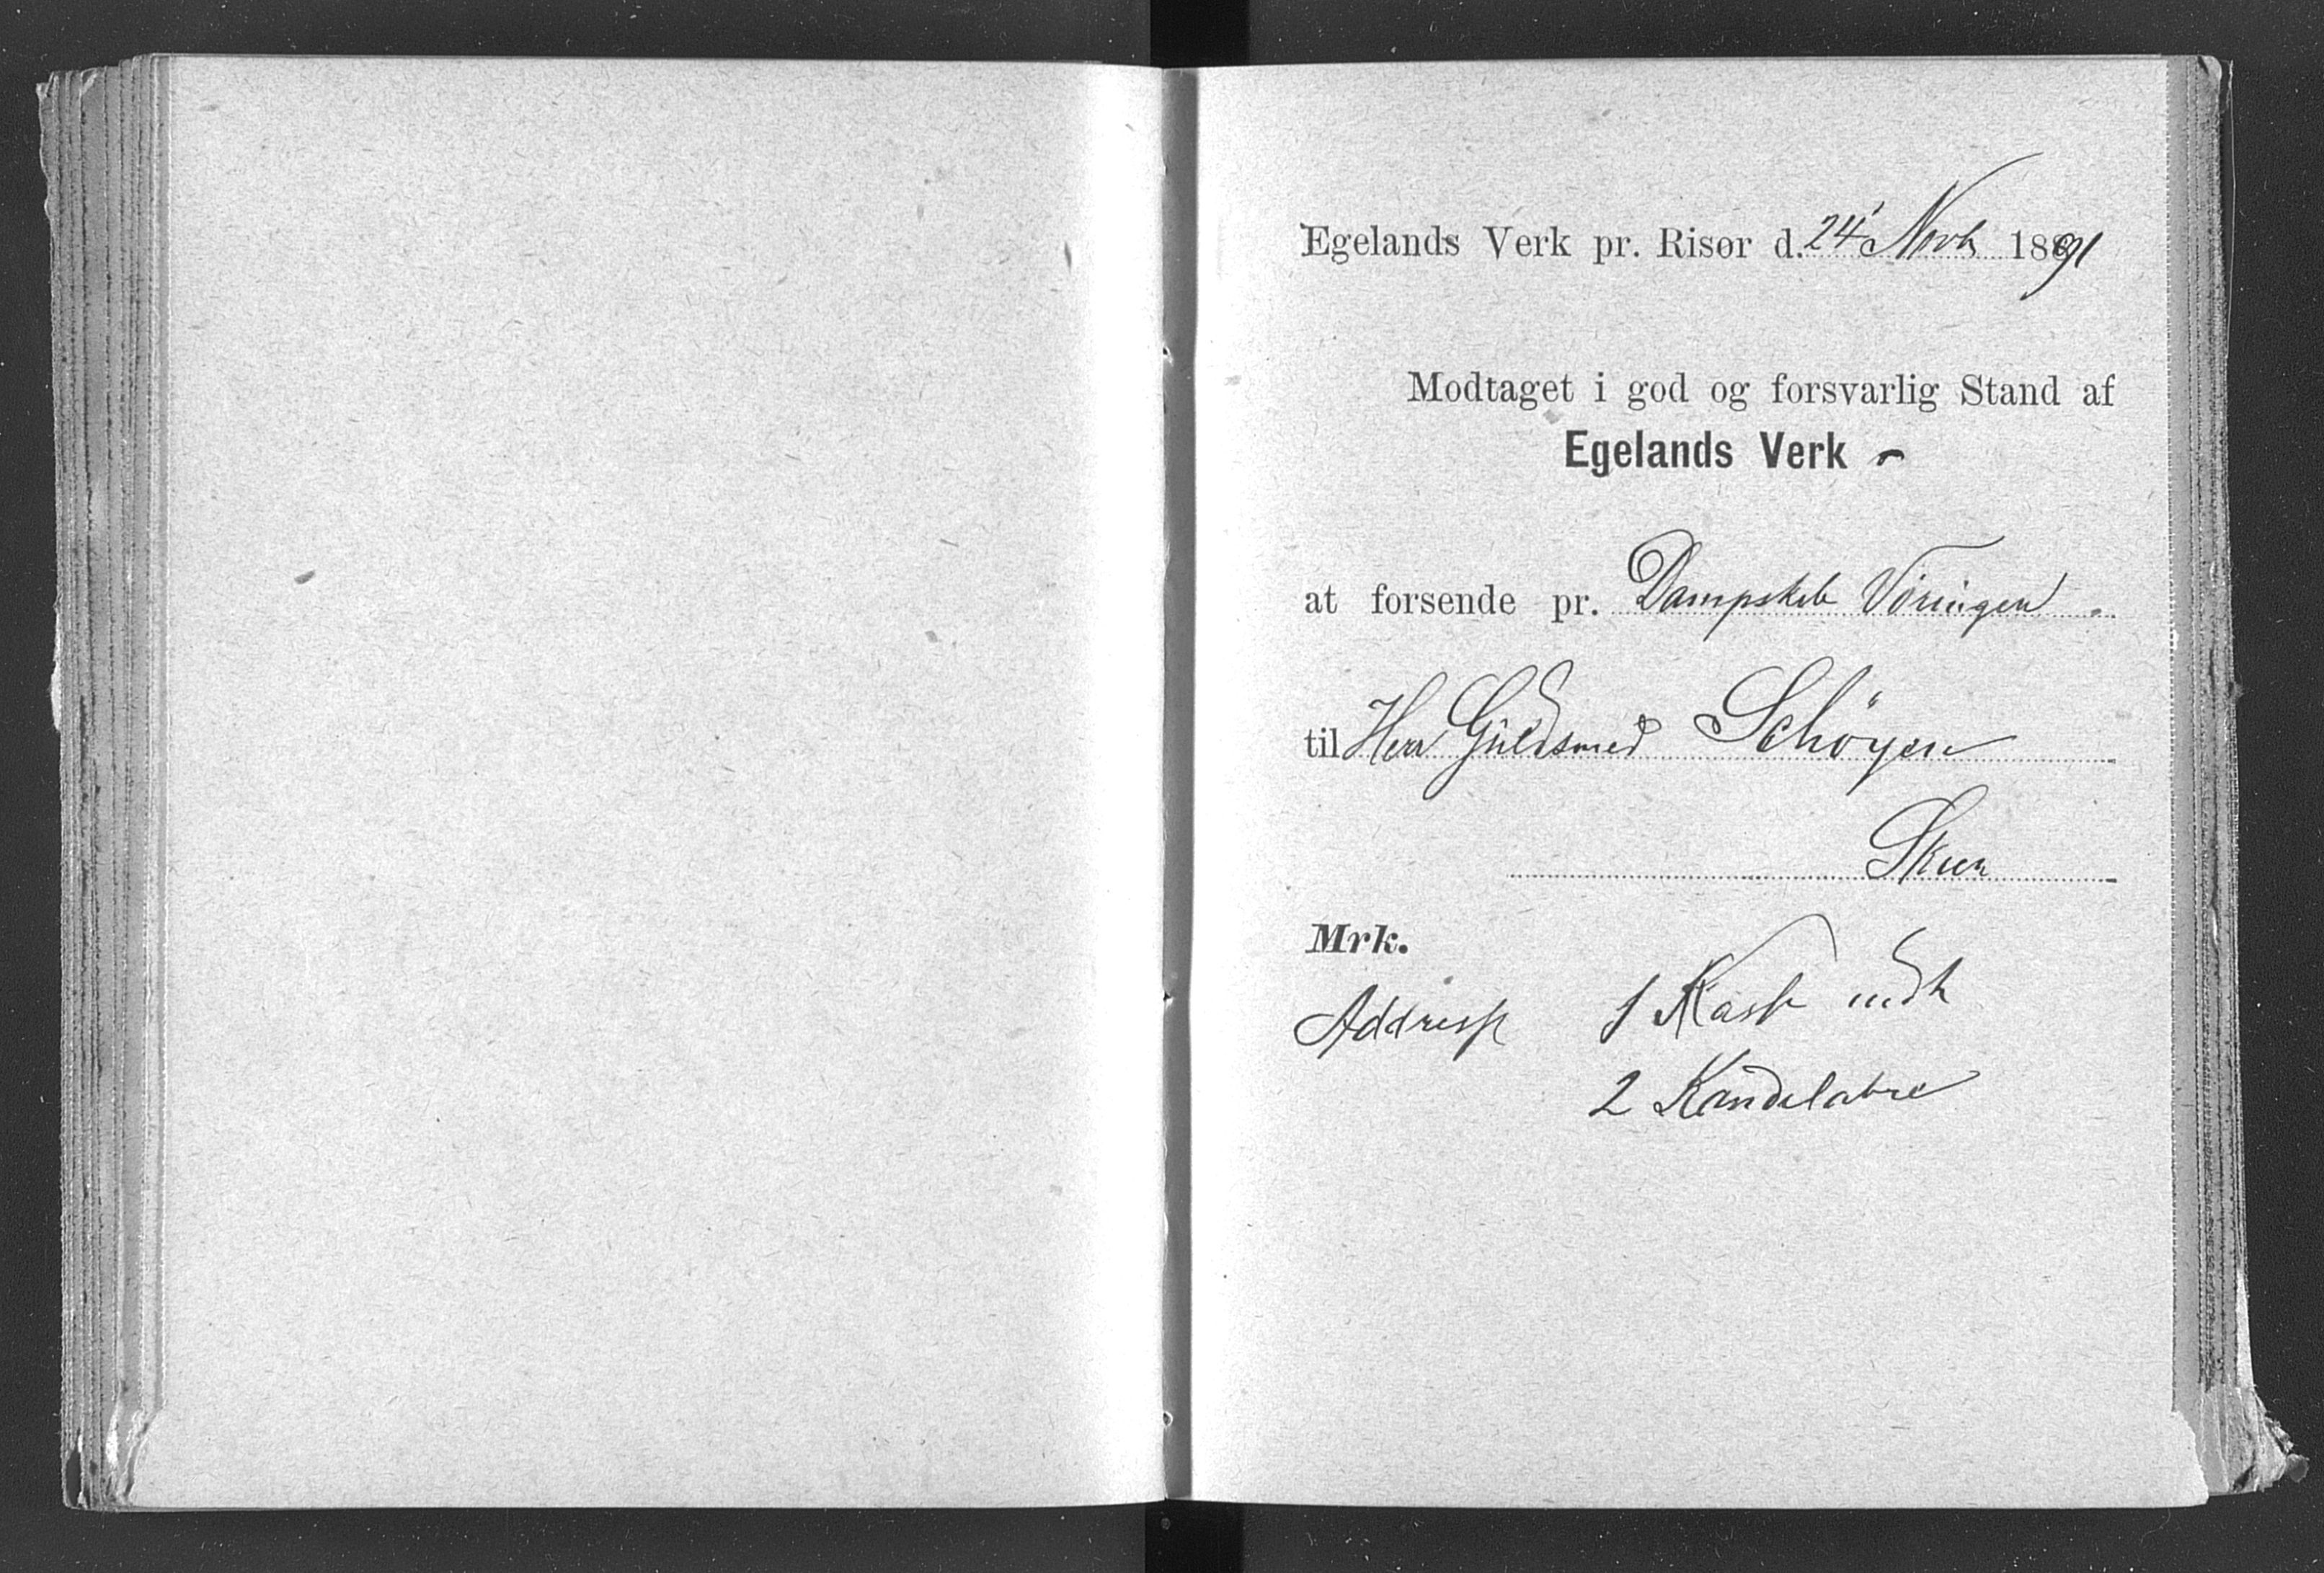 Egelands Verk pr. Risør d. 24' Novb 1891
Modtaget i god og forsvarlig Stand af
Egelands Verk
at forsende pr. Dampskib Vöringen
til Herr Guldsmed Schöyen
Skien
Mrk.
Addresse 1 Kasse indh
2 Kandelabre